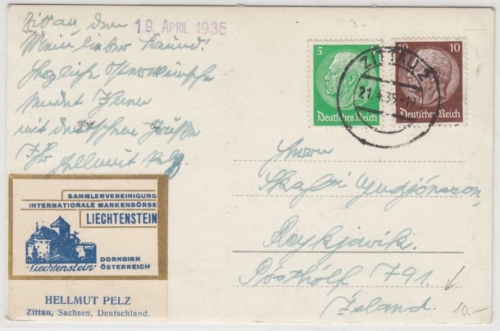 Zittau, den 19. APRIL 1935
Mein lieber Freund.
Herzliche Ostergrüße
sendet Ihnen
mit deutschem Gruß
Ihr Hellmut Pelz
5
Deutsches Reich
10
Deutsches Reich
ZITTAU 2
21.4.35
Herrn
Skafti Gudjónsson
Reykjavik.
Posthólf 791.
Island.
10.-
SAMMLERVEREINIGUNG
INTERNATIONALE MARKENBÖRSE
LIECHTENSTEIN
Liechtenstein
DORNBIRN
ÖSTERREICH
HELLMUT PELZ
Zittau, Sachsen, Deutschland.